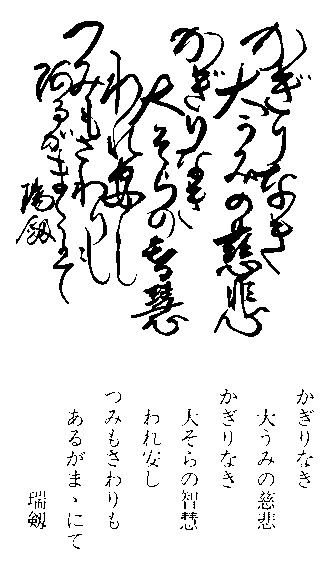 かぎりなき
大うみの慈悲
かぎりなき
大そらの智慧
われ安し
つみもさわりも
あるがまゝにて
瑞剱
かぎりなき
大うみの慈悲
かぎりなき
大そらの智慧
われ安し
つみもさわりも
あるがまゝにて
瑞剱